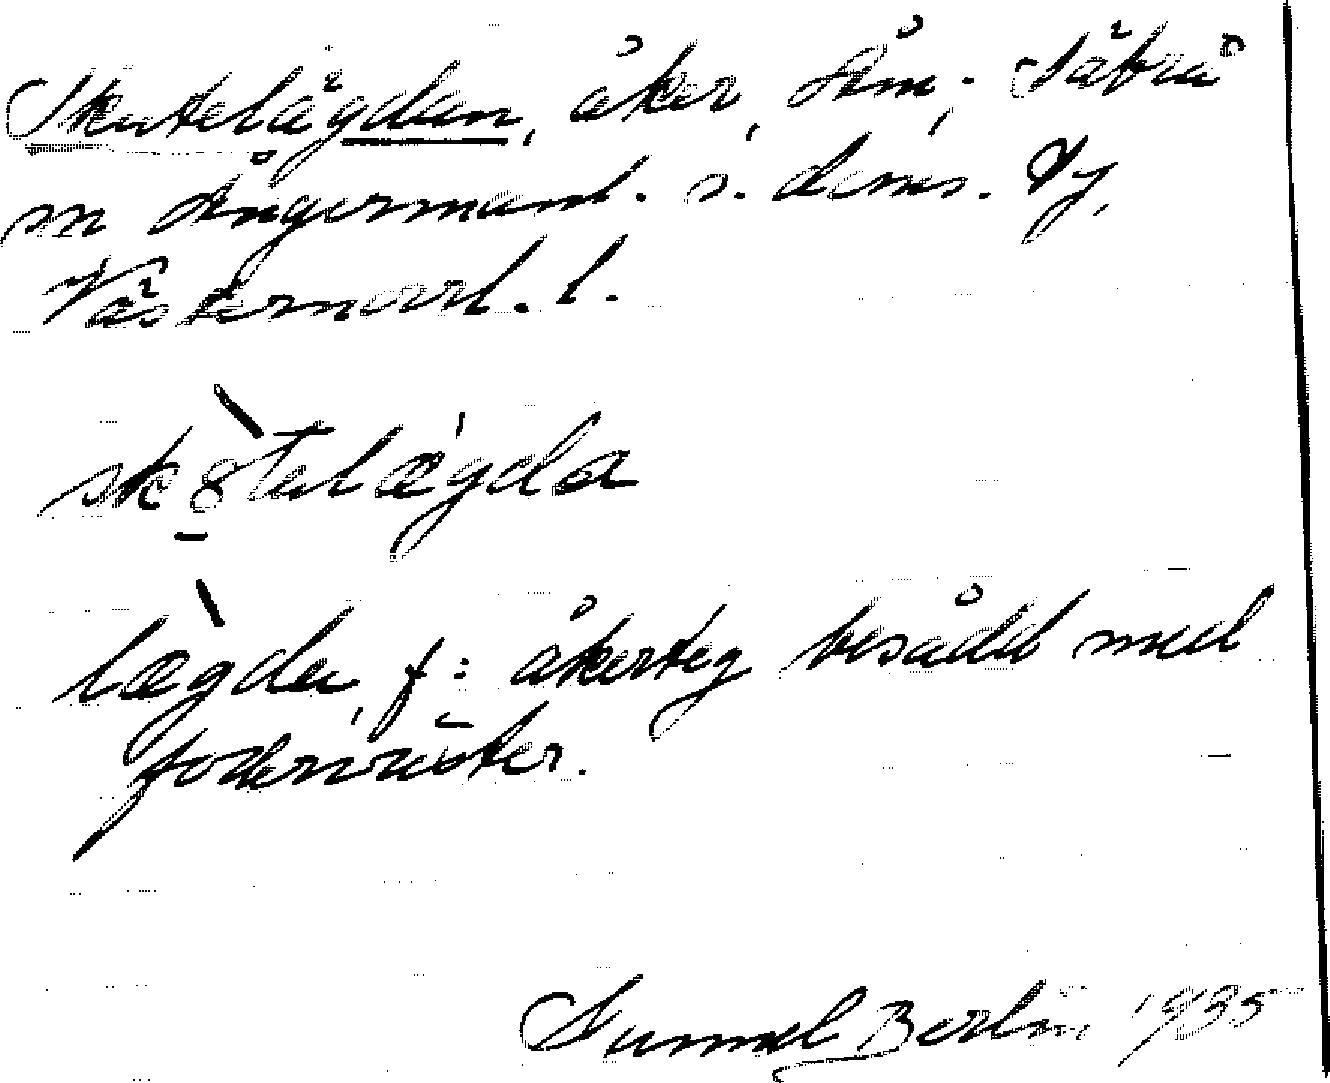 Skutelägdan, åker, Åm, Säbrå
sn Ångermanl. s. doms. Vj,
Västernorrl. l.
sk8telægda
lægda, f: åkerteg besådd med
foderväxter.
Berlin 1935